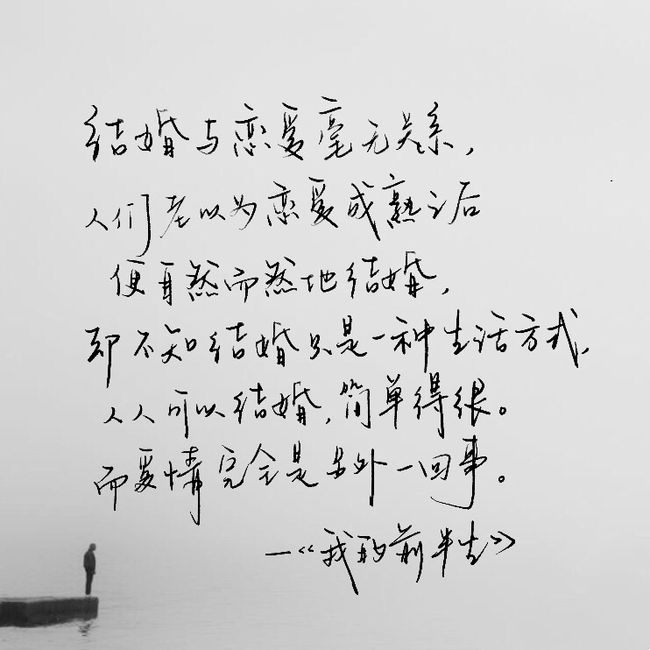 结婚与恋爱毫无关系,
人们老以为恋爱成熟之后
便自然而然地结婚,
却不知结婚只是一种生活方式,
人人可以结婚,简单得很。
而爱情完全是另外一回事。
—《我的前半生》